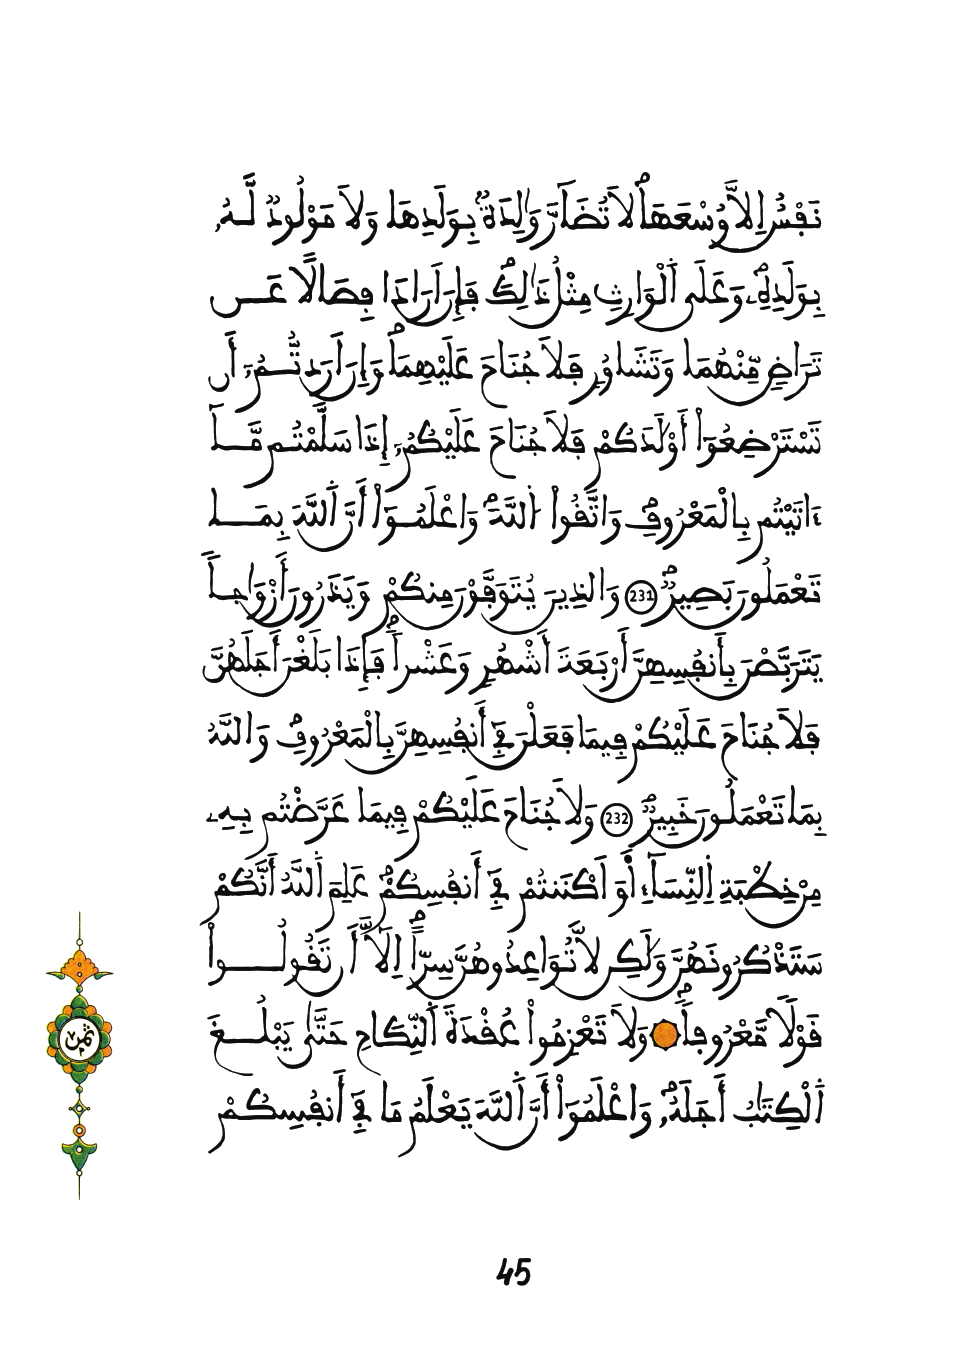 نَفْسٌ اِلَّا وُسْعَهَاۖ لَا تُضَآرَّ وَٰلِدَةُۢ بِوَلَدِهَا وَلَا مَوْلُودٞ لَّهُۥ
بِوَلَدِهِۦۖ وَعَلَي اَ۬لْوَارِثِ مِثْلُ ذَٰلِكَۖ فَإِنَ اَرَادَا فِصَالاً عَن
تَرَاضٖ مِّنْهُمَا وَتَشَاوُرٖ فَلَا جُنَاحَ عَلَيْهِمَاۖ وَإِنَ اَرَدتُّمُۥٓ أَن
تَسْتَرْضِعُوٓاْ أَوْلَٰدَكُمْ فَلَا جُنَاحَ عَلَيْكُمُۥٓ إِذَا سَلَّمْتُم مَّآ
ءَاتَيْتُم بِالْمَعْرُوفِۖ وَاتَّقُواْ اُ۬للَّهَۖ وَاعْلَمُوٓاْ أَنَّ اَ۬للَّهَ بِمَا
تَعْمَلُونَ بَصِيرٞۖ 231 وَالذِينَ يُتَوَفَّوْنَ مِنكُمْ وَيَذَرُونَ أَزْوَٰجاٗ
يَتَرَبَّصْنَ بِأَنفُسِهِنَّ أَرْبَعَةَ أَشْهُرٖ وَعَشْراٗۖ فَإِذَا بَلَغْنَ أَجَلَهُنَّ
فَلَا جُنَاحَ عَلَيْكُمْ فِيمَا فَعَلْنَ فِےٓ أَنفُسِهِنَّ بِالْمَعْرُوفِۖ وَاللَّهُ
بِمَا تَعْمَلُونَ خَبِيرٞۖ 232 وَلَا جُنَاحَ عَلَيْكُمْ فِيمَا عَرَّضْتُم بِهِۦ
مِنْ خِطْبَةِ اِ۬لنِّسَآءِ اَ۬وَ اَكْنَنتُمْ فِےٓ أَنفُسِكُمْۖ عَلِمَ اَ۬للَّهُ أَنَّكُمْ
سَتَذْكُرُونَهُنَّ وَلَٰكِن لَّا تُوَاعِدُوهُنَّ سِرّاً اِلَّآ أَن تَقُولُواْ
قَوْلاٗ مَّعْرُوفاٗۖ وَلَا تَعْزِمُواْ عُقْدَةَ اَ۬لنِّكَاحِ حَتَّيٰ يَبْلُغَ
اَ۬لْكِتَٰبُ أَجَلَهُۥۖ وَاعْلَمُوٓاْ أَنَّ اَ۬للَّهَ يَعْلَمُ مَا فِےٓ أَنفُسِكُمْ
ثمن
45